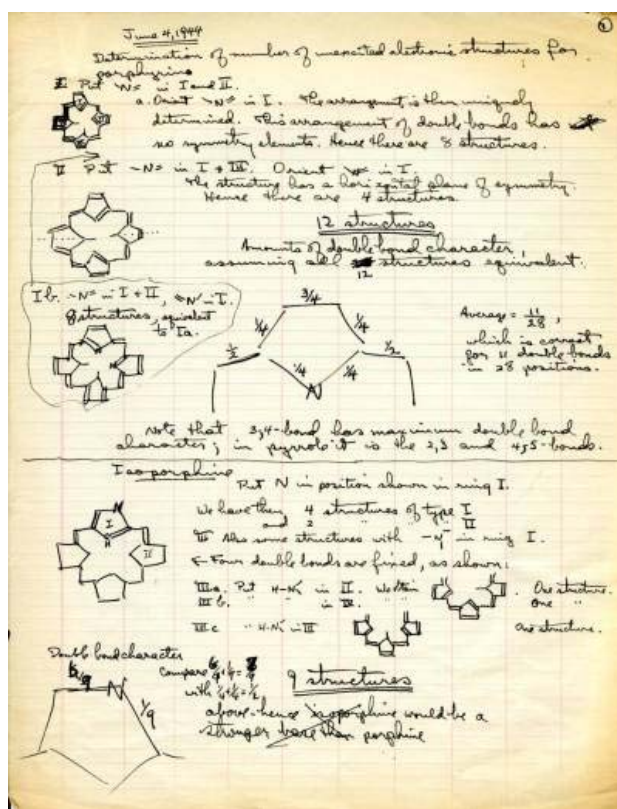 June 4, 1944
Determination of number of unexcited electronic structures for
porphyrins
I Put -N= in I and II.
a. Orient -N= in I. The arrangement is then uniquely
determined. This arrangement of double bonds has
no symmetry elements. Hence there are 8 structures.
II Put -N= in I + III. Orient in I.
The structure has a horizontal plane of symmetry.
Hence there are 4 structures.
12 structures
Amounts of double bond character,
assuming all structures equivalent.
12
Ib. -N= in I + II, =N- in I.
8 structures, equivalent
to Ia.
3/4
1/4 1/4
1/2 1/2
1/4 1/4
N
Average = 11/28,
which is correct
for 11 double bonds
in 28 positions.
Note that 3,4-bond has maximum double bond
character; in pyrrole it is the 2,3 and 4,5-bonds.
Isoporphine
Put N in position shown in ring I.
N
I
H
II
We have then 4 structures of type I
and 2 " " " II
III Also some structures with in ring I.
Four double bonds are fixed, as shown:
IIIa. Put H-N in II. We obtain One structure.
IIIb. " in IV. One "
IIIc " H-N in III One structure.
Double bond character
N
1/9
Compare
with 1/4+1/4=1/2
above - hence isoporphine would be a
stronger base than porphine
9 structures